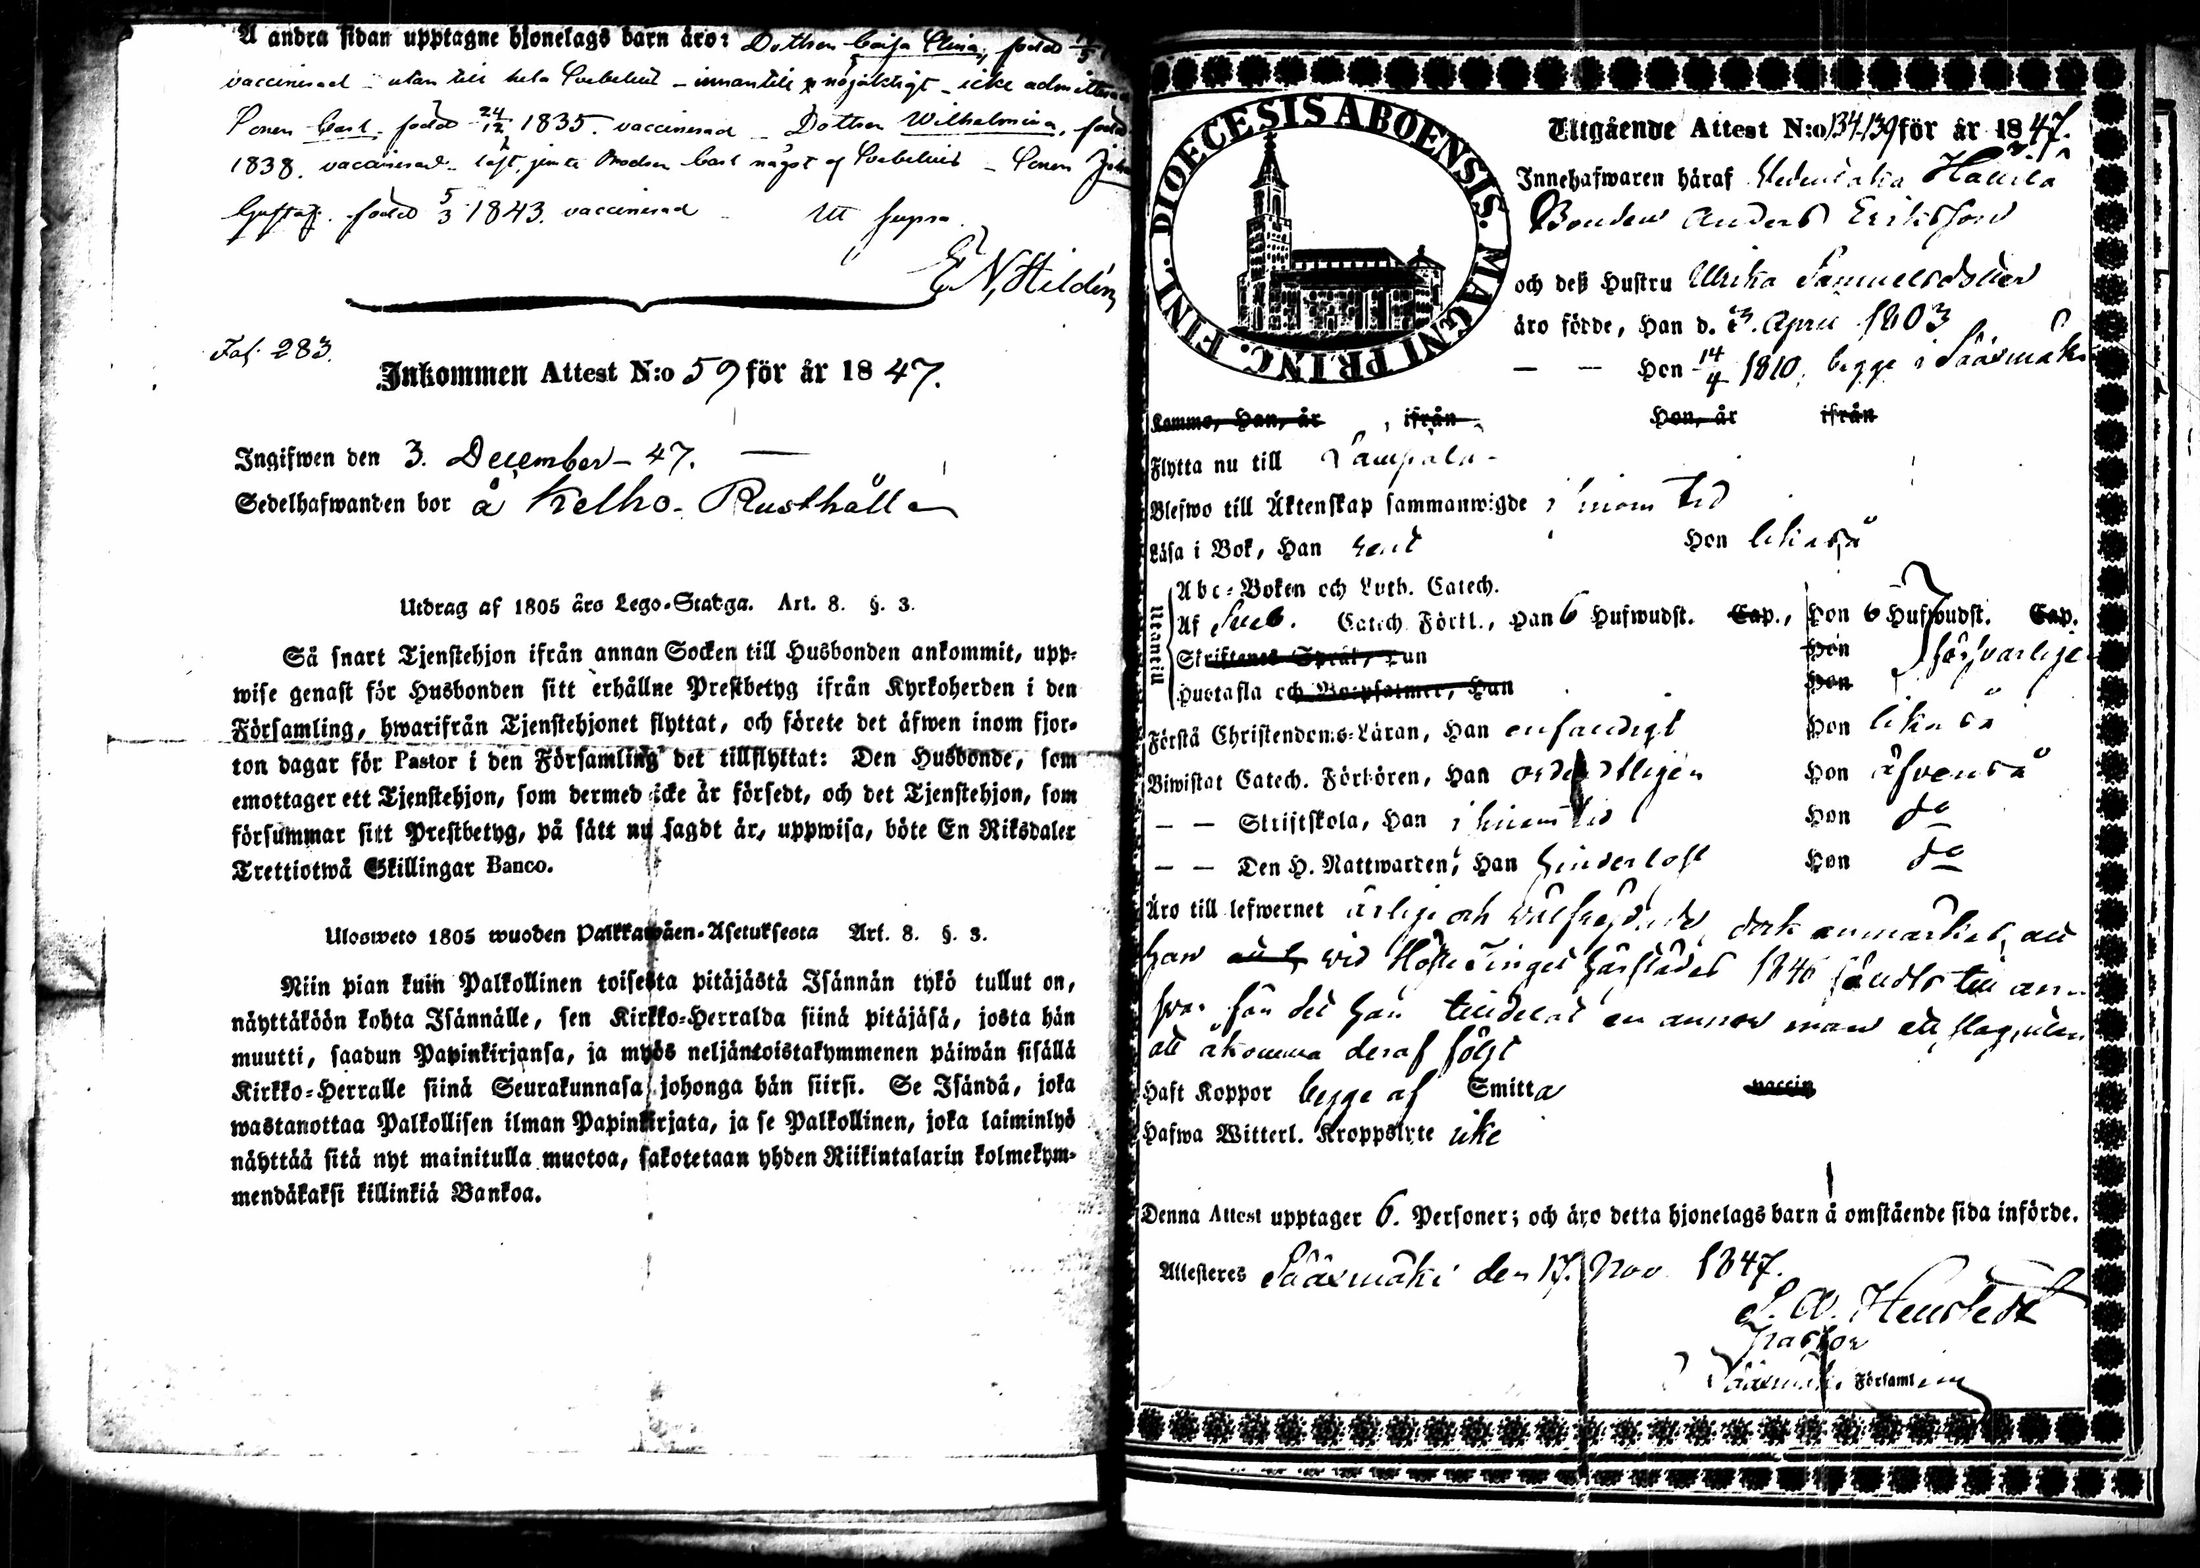 Å andra sidan upptagne hjonelags barn äro: Dottren Caisa Stina, född
vaccinerad - utan till hela Svebelius - innantill nöjaktigt - icke admitterad
Sonen Carl född 24/12 1835. vaccinerad - Dottren Wilhelmina, född
1838. vaccinerad - läst, jemte Brodren Carl något af Svebelius - Sonen Joh
Gustaf. född 5/3 1843. vaccinerad - Ut supra
E N, Hildén
Fol. 283.
Inkommen Attest N:o 59 för år 1847.
Ingifwen den 3. December - 47. —
Sedelhafwanden bor å Kelho - Rusthåll
Utdrag af 1805 års Lego-Stadga. Art. 8. §. 3.
Så snart Tjenstehjon ifrån annan Socken till Husbonden ankommit, upp-
wise genast för Husbonden sitt erhållne Prestbetyg ifrån Kyrkoherden i den
Församling, hwarifrån Tjenstehjonet flyttat, och förete det äfwen inom fjor-
ton dagar för Pastor i den Församling det tillflyttat: Den Husbonde, som
emottager ett Tjenstehjon, som dermed icke är försedt, och det Tjenstehjon, som
försummar sitt Prestbetyg, på sätt nu sagdt är, uppwisa, böte En Riksdaler
Trettiotwå Skillingar Banco.
Ulosweto 1805 wuoden Palkkawäen-Asetuksesta Art. 8. §. 3.
Niin pian kuin Palkollinen toisesta pitäjästä Isännän tykö tullut on,
näyttäköön kohta Isännälle, sen Kirkko-Herralda siinä pitäjäsä, josta hän
muutti, saadun Papinkirjansa, ja myös neljäntoistakymmenen päiwän sisällä
Kirkko-Herralle siinä Seurakunnasa johonga hän siirsi. Se Isändä, joka
wastanottaa Palkollisen ilman Papinkirjata, ja se Palkollinen, joka laiminlyö
näyttää sitä nyt mainitulla muotoa, sakotetaan yhden Riikintalarin kolmekym-
mendäkaksi killinkiä Bankoa.
DIOECESIS ABOENSIS. MAGNI PRINC. FINL.
Utgående Attest N:o 134-139 för år 1847.
Innehafwaren häraf
Bonden Anders Eriksson
och deß Hustru Ulrika Samuelsdotter
äro födde, Han d. April 1803
— — Hon 14/4 1810, begge i Sääxmäki
Komme, Han, år , ifrån Hon, år ifrån
Flytta nu till
Blefwo till Äktenskap sammanwigde i sinom tid
Läsa i Bok, Han rent Hon likaså
Utantill
Abc-Boken och Luth. Catech.
Af Sveb. Catech Förkl., Han 6 Hufwudst. Cap., Hon 6 Hufwudst. Cap.
Skriftenes Språk, Han Hon försvarligen
Hustafla och Botpsalmer, Han Hon
Förstå Christendoms-Läran, Han enfaldigt Hon likaså
Biwistat Catech. Förhören, Han ordentligen Hon äfvenså
— — Skriftskola, Han i sinom tid Hon do
— — Den H. Nattwarden, Han hinderlöst Hon do
Äro till lefwernet ärlige och wälfrejdade, dock anmärkes, att
han wid Höste Tinget härstädes 1846 fälldts till ans-
svar för det han tilldelat en annan man ett slag, utan
att åkomma deraf följt
Haft Koppor begge af Smitta vaccin
Hafwa Witterl. Kroppslyte icke
Denna Attest upptager 6. Personer; och äro detta hjonelags barn å omstående sida införde.
Attesteres Sääxmäki den 17. Nov. 1847.
Pastor
i Sääxmäki Församling